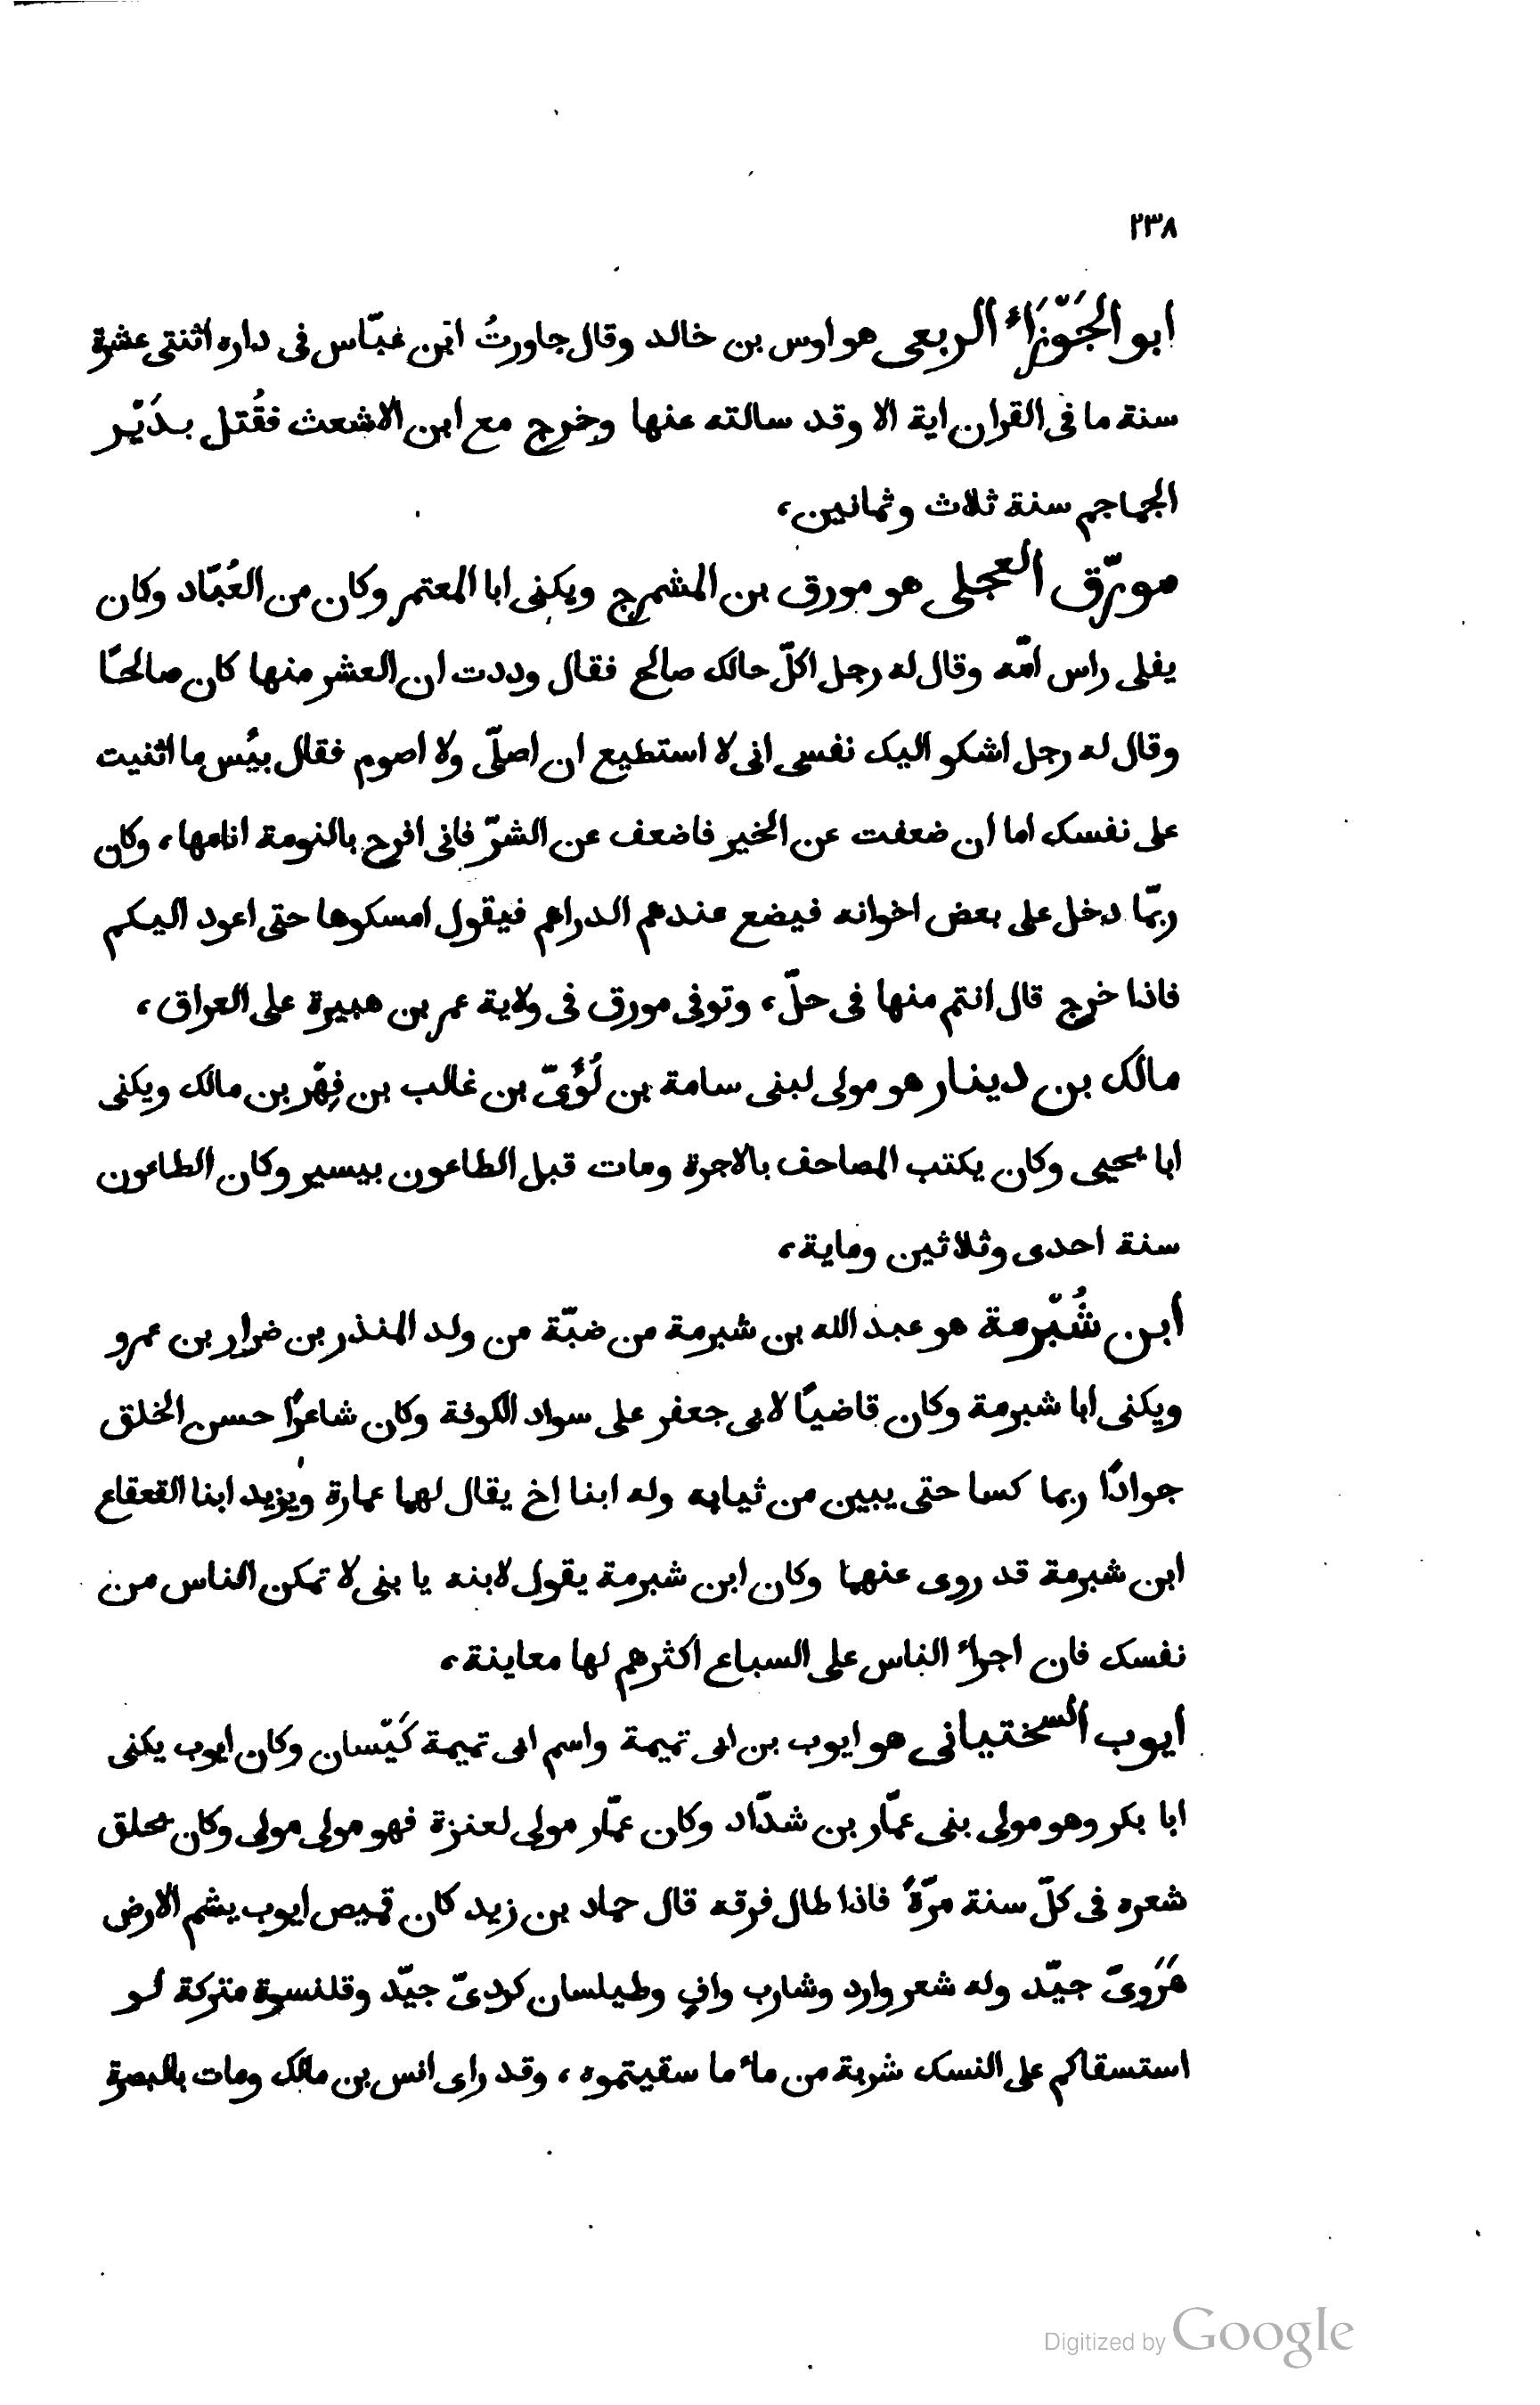 ٢٣٨
ابو الجَوْزَاء الربعى هو اوس بن خالد وقال جاورتُ ابن عبّاس فى داره اثنتى عشرة
سنة ما فى القران اية الا وقد سالته عنها وخرج مع ابن الاشعث فقُتل بدَيْر
الجماجم سنة ثلاث وثمانين،
مورّق العجلى هو مورق بن المشمرج ويكنى ابا المعتمر وكان من العُبّاد وكان
يفلى راس امّه وقال له رجل اكلّ حالك صالح فقال وددت ان العشر منها كان صالحًا
وقال له رجل اشكو اليك نفسى انى لا استطيع ان اصلّى ولا اصوم فقال بيُس ما اثنيت
على نفسك اما ان ضعفت عن الخير فاضعف عن الشرّ فانى افرح بالنومة انامها، وكان
ربّما دخل على بعض اخوانه فيضع عندهم الدراهم فيقول امسكوها حتى اعود اليكم
فاذا خرج قال انتم منها فى حلّ، وتوفى مورق فى ولاية عمر بن هبيرة على العراق،
مالك بن دينار هو مولى لبنى سامة بن لُؤَىّ بن غالب بن فِهْر بن مالك ويكنى
ابا يحيى وكان يكتب المصاحف بالاجرة ومات قبل الطاعون بيسير وكان الطاعون
سنة احدى وثلاثين وماية،
ابن شُبْرمة هو عبد الله بن شبرمة من ضبّة من ولد المنذر بن ضرار بن عمرو
ويكنى ابا شبرمة وكان قاضيًا لابى جعفر على سواد الكوفة وكان شاعرًا حسن الخلق
جوادًا ربما كسا حتى يبين من ثيابه وله ابنا اخ يقال لهما عمارة ويزيد ابنا القعقاع
ابن شبرمة قد روى عنهما وكان ابن شبرمة يقول لابنه يا بنى لا تمكن الناس من
نفسك فان اجراء الناس على السباع اكثرهم لها معاينة،
ايوب السختيانى هو ايوب بن ابى تميمة واسم ابى تميمة كَيْسان وكان ايوب يكنى
ابا بكر وهو مولى بنى عمّار بن شدّاد وكان عمّار مولى لعنزة فهو مولى مولى وكان يحلق
شعره فى كلّ سنة مرّةً فاذا طال فرقه قال حماد بن زيد كان قميص ايوب يشم الارض
هَرَوىّ جيّد وله شعر وارد وشارب وافٍ وطيلسان كردىّ جيّد وقلنسوة متركة لو
استسقاكم على النسك شربة من ماء ما سقيتموه، وقد راى انس بن مالك ومات بالبصرة
Digitized by Google